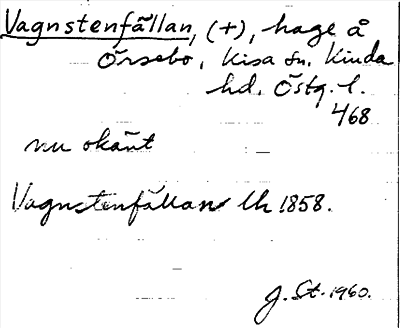 Vagnstenfällan, (+), hage å
Örsebo, Kisa sn. Kinda
hd. Östg. l.
468
nu okänt
Vagnstenfällan Lh 1858.
J. St. 1960.